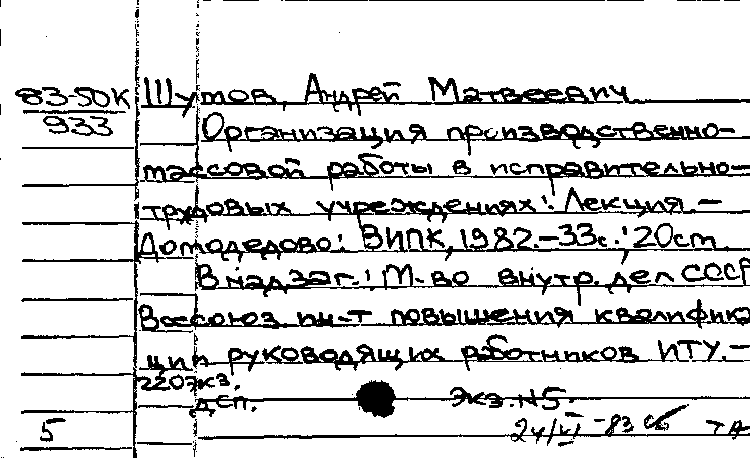 83-50К
933
Шутов, Андрей Матвеевич.
Организация производственно-
массовой работы в исправительно-
трудовых учреждениях: Лекция.-
Домодедово: ВИПК, 1982.-33с.; 20см.
В надзаг.: М-во внутр. дел СССР
Всесоюз. ин-т повышения квалифика
ции руководящих работников ИТУ.-
220экз.
ДСП.
Экз. N5.
5
24/VI -83